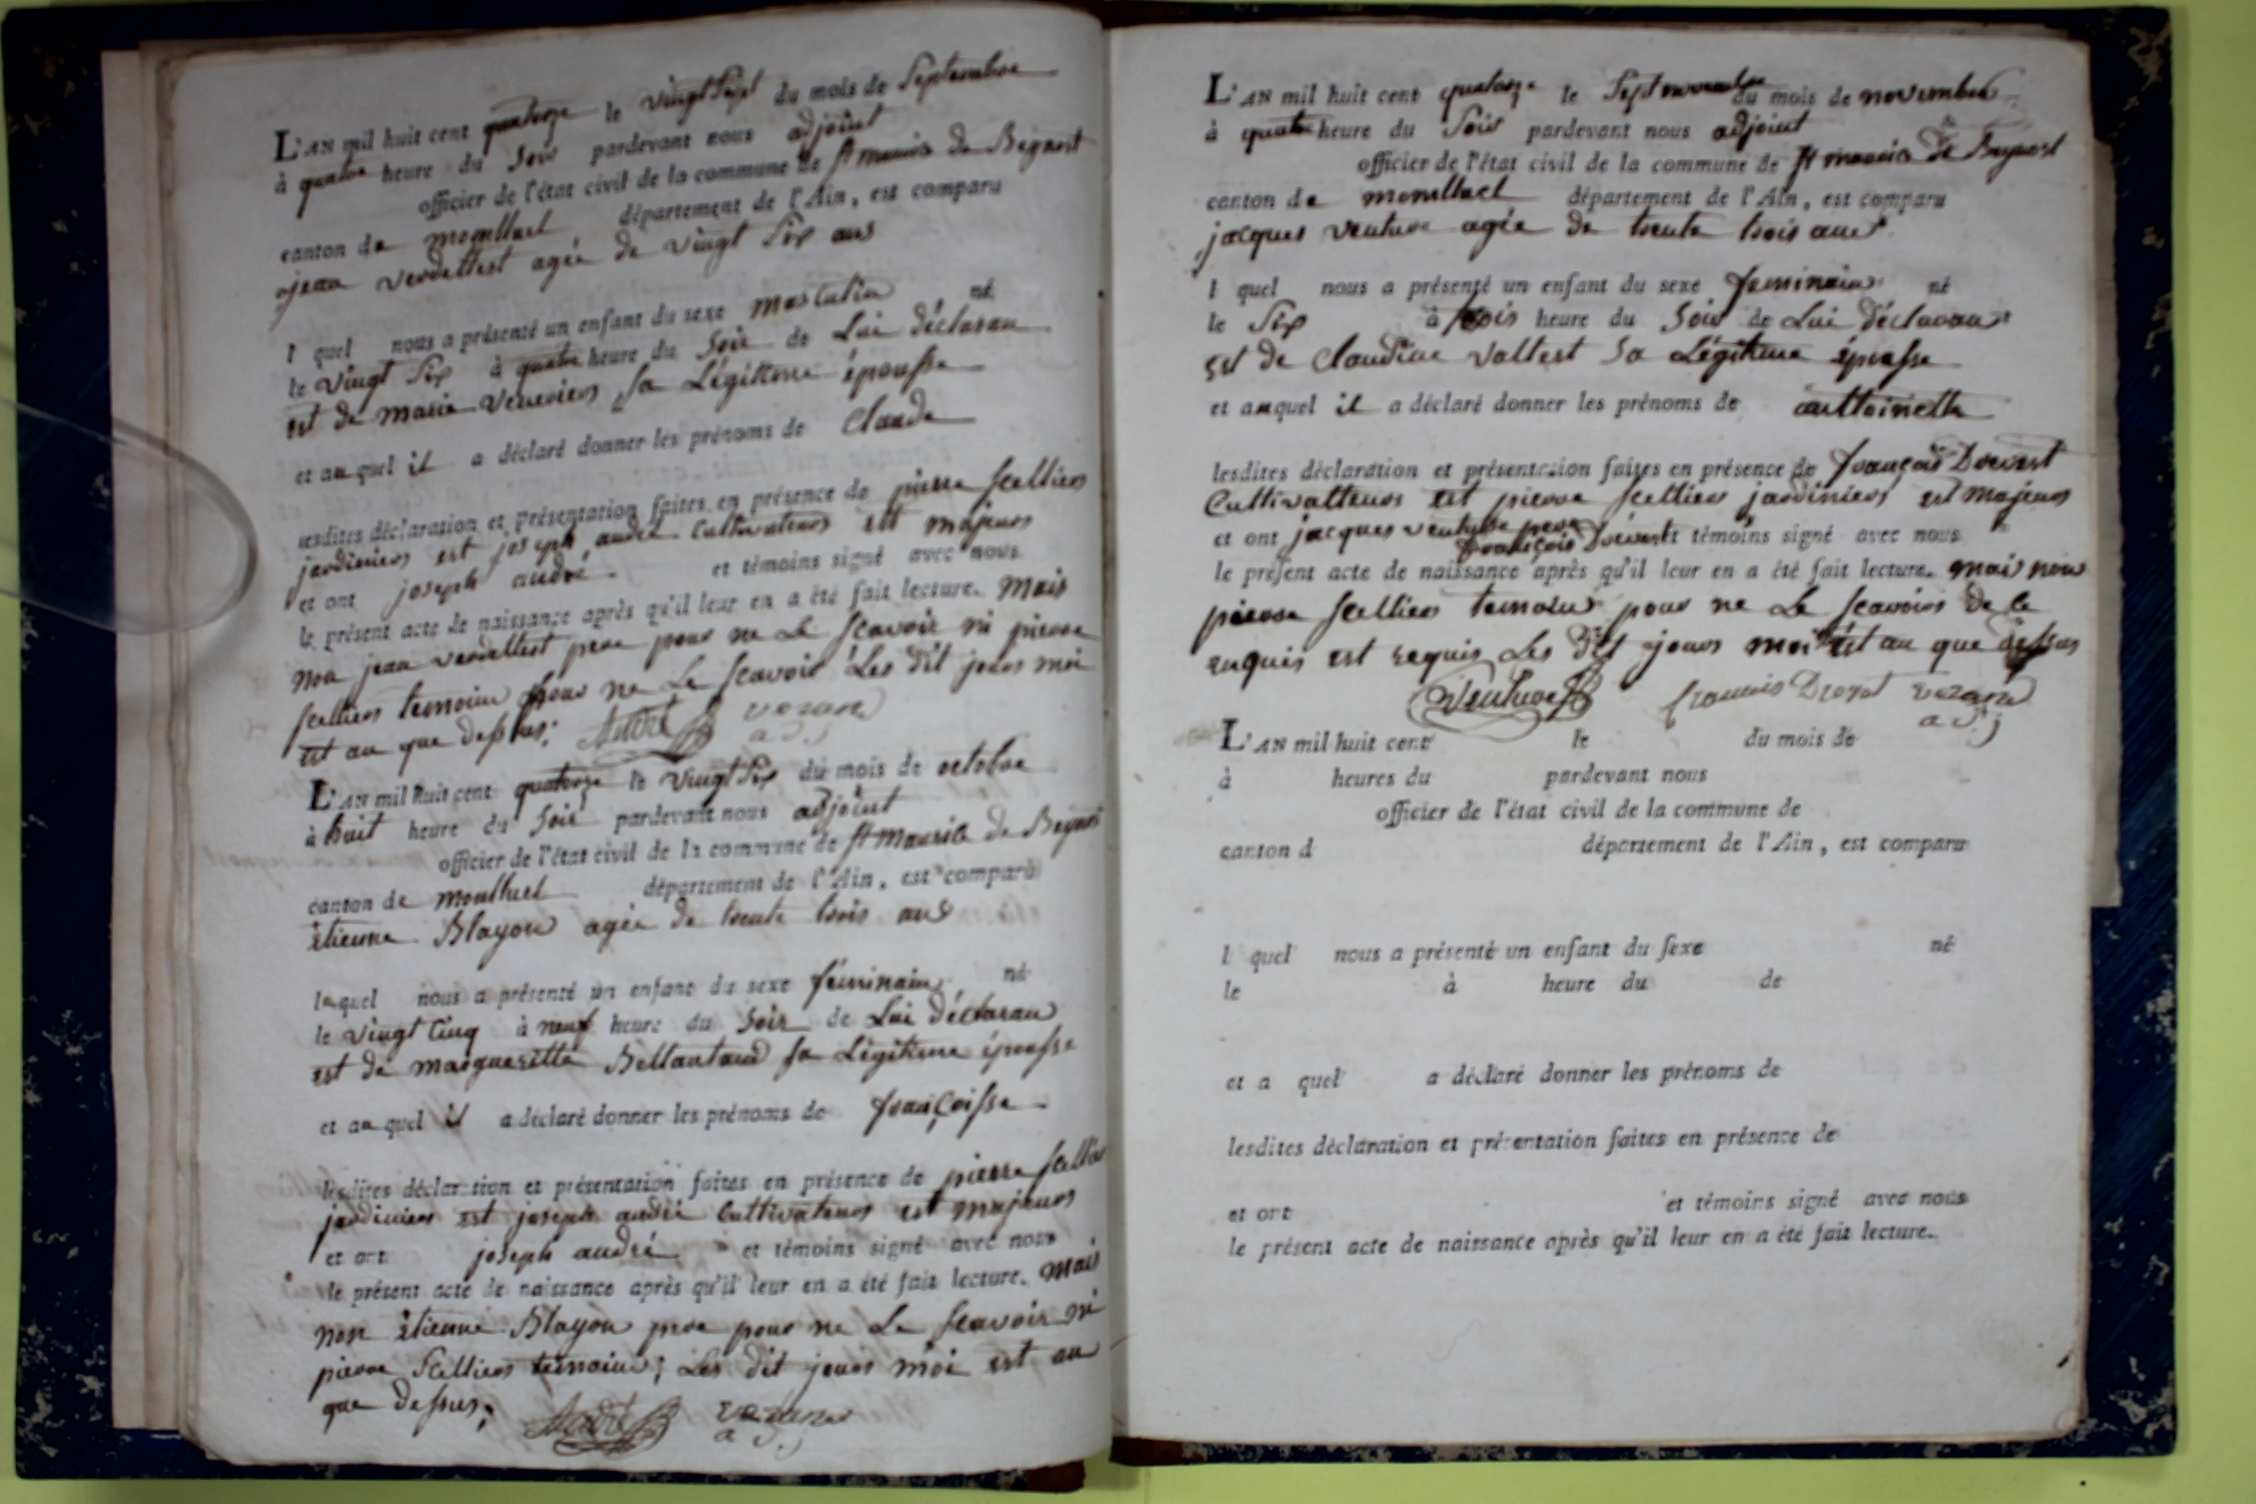 L'AN mil huit cent quatorze le vingt sept du mois de Septembre
à quatre heure du Soir pardevant nous adjoint
officier de l'état civil de la commune de St maurice de Beynost
canton de montluel département de l'Ain, est comparu
jean verdellest agée de vingt six ans
l quel nous a présenté un enfant du sexe masculin né
le vingt Six à quatre heure du Soir de Lui déclarau
est de marie sa Légitime épousse
et auquel il a déclaré donner les prénoms de Claude
lesdites déclaration et présentation faites en présence de pierre scelliers
jardiniers est joseph andré Cultivateurs est majeurs
et ont joseph andré et témoins signé avec nous
le présent acte de naissance après qu'il leur en a été fait lecture. mais
non jean verdellest pere pour ne Le scavoir ni pierre
scelliers temoins pour ne Le scavoir Les dit jours moi
est an que dessus; André vezans
adj
L'AN mil huit cent quatorze le vingt six du mois de octobre
à huit heure du Soir pardevant nous adjoint
officier de l'état civil de la commune de St Maurice de Beynost
canton de montluel département de l'Ain, est comparu
étienne Blayon agée de trente trois ans
lequel nous a présenté un enfant du sexe féminain né
le vingt cinq à neuf heure du Soir de Lui déclarau
est de margueritte Bellantand sa Légitime épousse
et auquel il a déclaré donner les prénoms de françoisse
lesdites déclaration et présentation faites en présence de pierre scelliers
jardiniers est joseph andré Cultivateurs est majeurs
et ont joseph andré et témoins signé avec nous
le présent acte de naissance après qu'il leur en a été fait lecture. mais
non étienne Blayon pere pour ne Le scavoir ni
pierre scelliers temoins; Les dit jours moi est an
que dessus; André vezans
adj
L'AN mil huit cent quatorze le Sept novembre du mois de novembre
à quatre heure du Soir pardevant nous adjoint
officier de l'état civil de la commune de St maurice de Beynost
canton de montluel département de l'Ain, est comparu
jacques venture agée de trente trois ans
l quel nous a présenté un enfant du sexe feminain né
le Six à trois heure du Soir de Lui déclarau
est de Claudine Valtest Sa Légitime épousse
et auquel il a déclaré donner les prénoms de anttoinette
lesdites déclaration et présentation faites en présence de françois Drevest
Cultivatteurs est pierre scelliers jardiniers est majeurs
et ont jacques venture pere
françois Drevest et témoins signé avec nous
le présent acte de naissance après qu'il leur en a été fait lecture. mais non
pierre scelliers temoins pour ne Le scavoirs de ce
enquis est requis Les dit jours moi est an que dessus
Venture françois Drevet vezans
adj
L'AN mil huit cent le du mois de
à heures du pardevant nous
officier de l'état civil de la commune de
canton d département de l'Ain, est comparu
l quel nous a présenté un enfant du sexe né
le à heure du de
et a quel a déclaré donner les prénoms de
lesdites déclaration et présentation faites en présence de
et ont et témoins signé avec nous
le présent acte de naissance après qu'il leur en a été fait lecture.